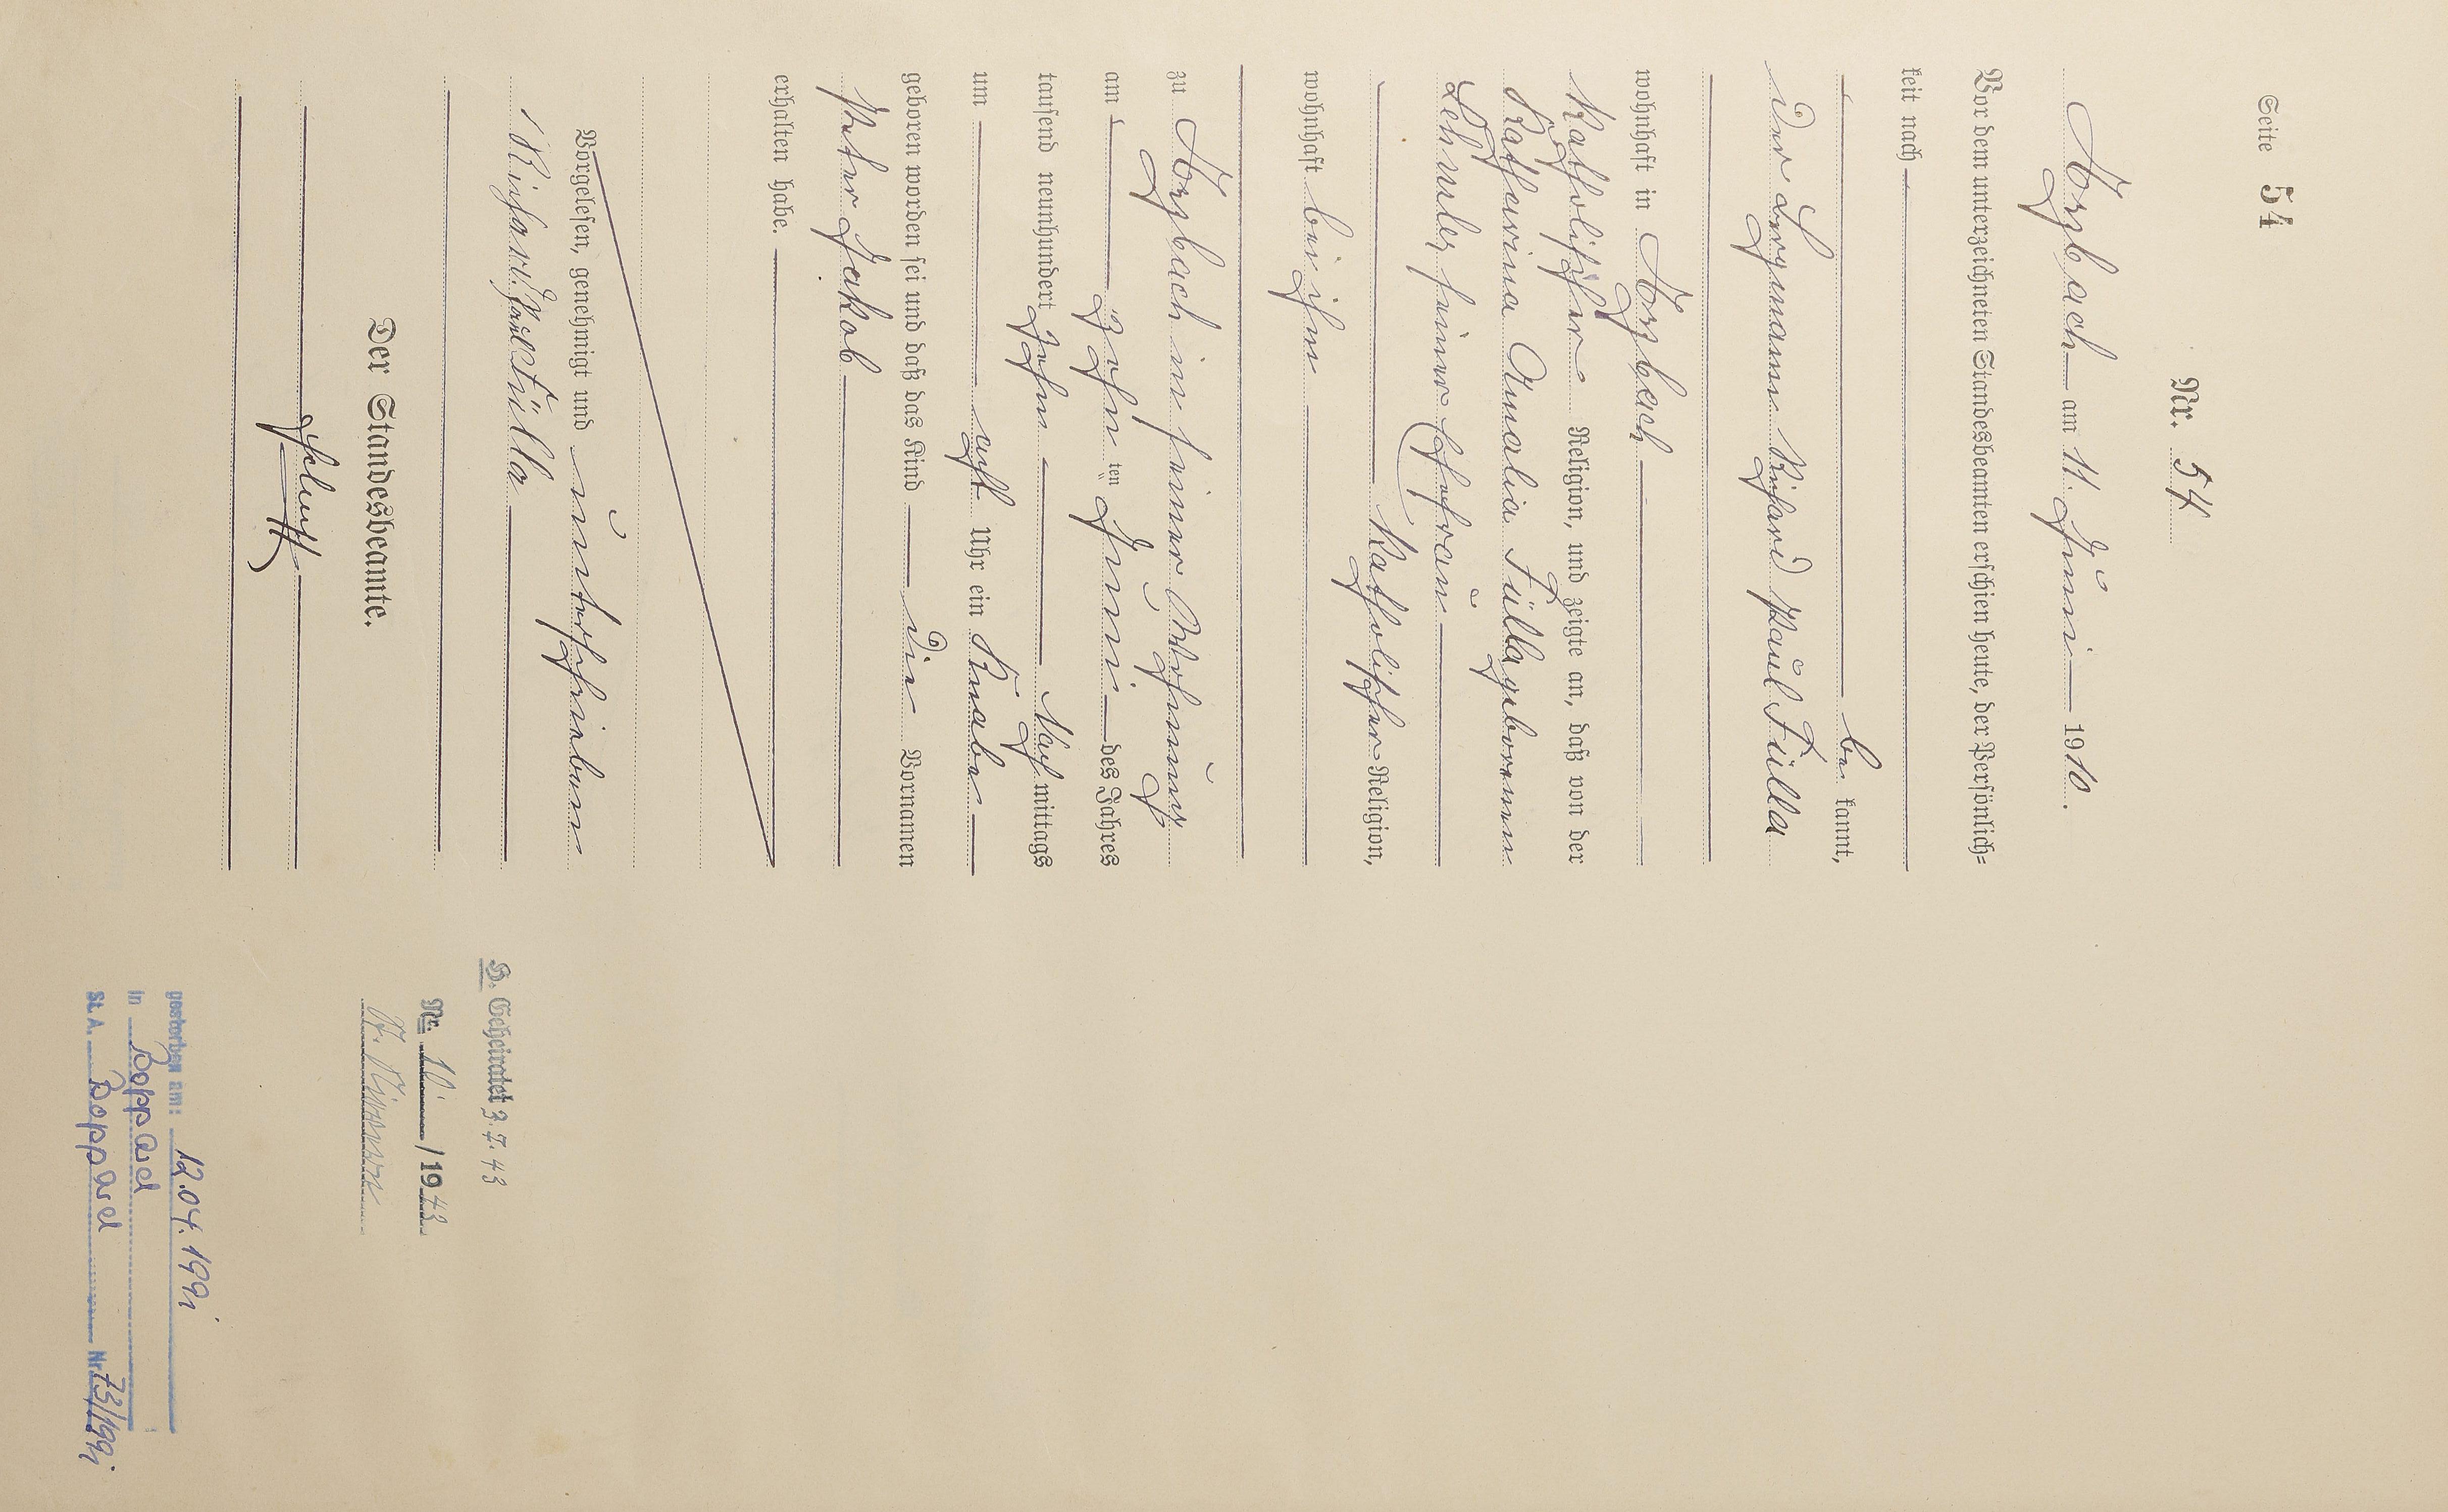 Seite 54
Nr. 54
Horzbach am 11. Juni 1910.
Vor dem unterzeichneten Standesbeamten erschien heute, der Persönlich=
keit nach
be kannt,
der Bergmann Richard Paul Fülla
wohnhaft in Horzbach
katholischer Religion, und zeigte an, daß von der
Katharina Amalia Fülla geborenen
seiner Ehefrau
katholischer Religion,
wohnhaft bei ihm
zu Horzbach in seiner Wohnung
am zehn ten Juni des Jahres
tausend neunhundert zehn Nach mittags
um acht Uhr ein Knabe
geboren worden sei und daß das Kind die Vornamen
Peter Jakob
erhalten habe.
Vorgelesen, genehmigt und unterschrieben
Richard Paul Fülla
Der Standesbeamte.
H. Geheiratet 3.7.43
Nr. 10 / 1943
gestorben am: 12.04.1991
in Boppard
St. A. Boppard Nr. 73/1991